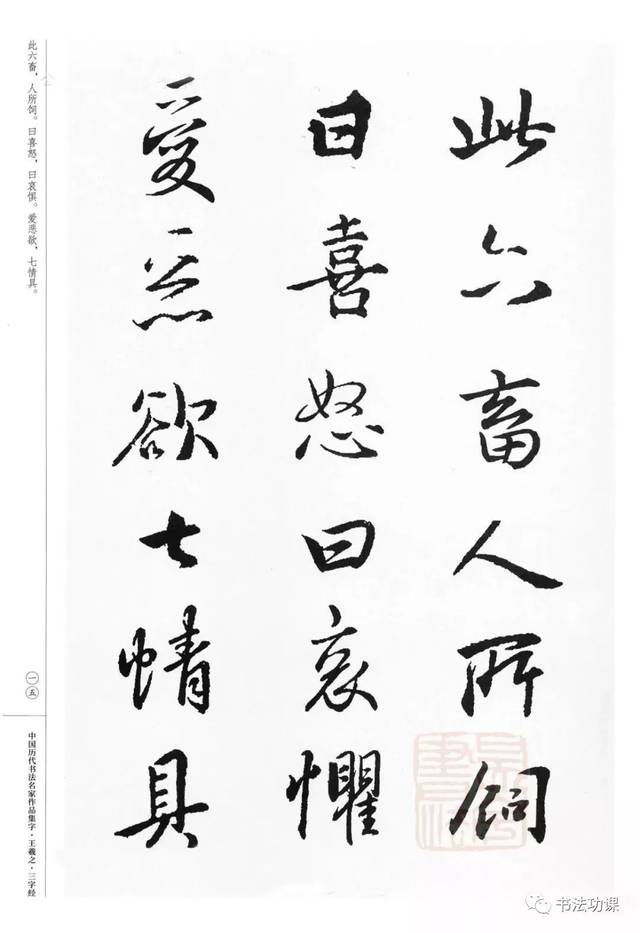 此六畜人所饲
曰喜怒曰哀惧
爱恶欲七情具
此六畜，人所饲。曰喜怒，曰哀惧。爱恶欲，七情具。
一五
中国历代书法名家作品集字·王羲之·三字经
书法功课